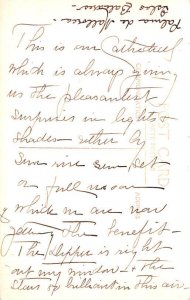 Palma de Mallorca -
Isles Baleares -
This is our Cathedral
which is always giving
us the pleasantest
surprises in lights &
shades - either by
sun rise sun set
or full moon
which we are now
the benefit -
The dipper is right
out my window & the
Stars so brilliant in this air
POST CARD